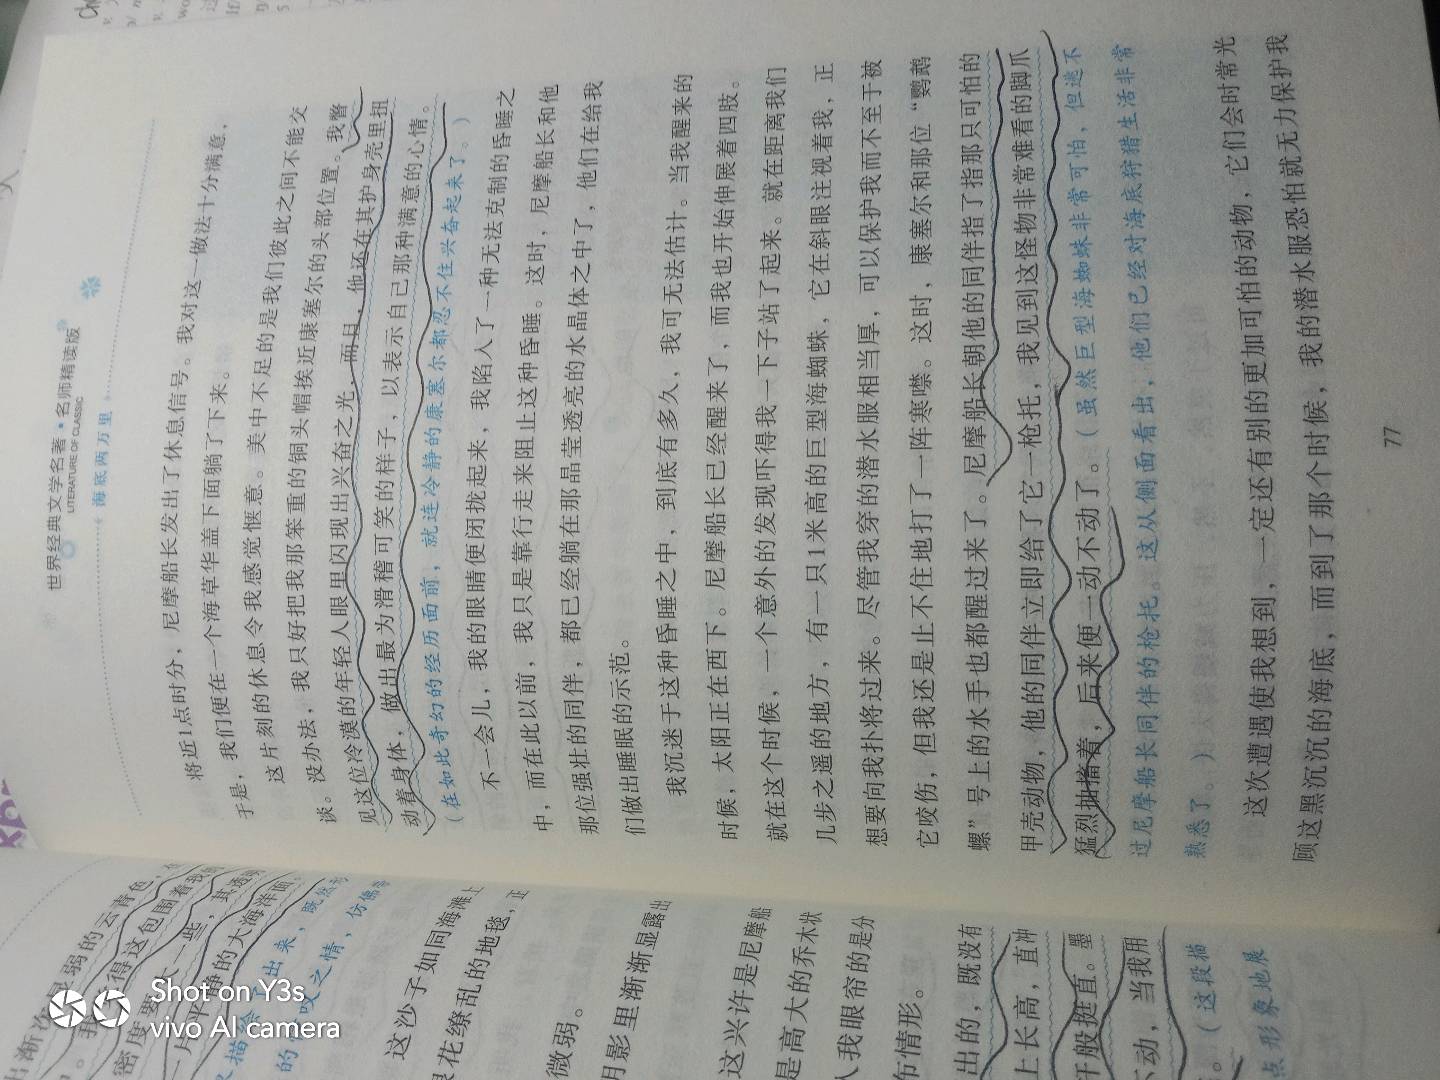 世界经典文学名著·名师精读版
LITERATURE OF CLASSIC
海底两万里
将近1点时分，尼摩船长发出了休息信号。我对这一做法十分满意，
于是，我们便在一个海草华盖下面躺了下来。
这片刻的休息令我感觉惬意。美中不足的是我们彼此之间不能交
谈。没办法，我只好把我那笨重的铜头帽挨近康塞尔的头部位置。我瞥
见这位冷漠的年轻人眼里闪现出兴奋之光，而且，他还在其护身壳里扭
动着身体，做出最为滑稽可笑的样子，以表示自己那种满意的心情。
（在如此奇幻的经历面前，就连冷静的康塞尔都忍不住兴奋起来了。）
不一会儿，我的眼睛便闭拢起来，我陷入了一种无法克制的昏睡之
中，而在此以前，我只是靠行走来阻止这种昏睡。这时，尼摩船长和他
那位强壮的同伴，都已经躺在那晶莹透亮的水晶体之中了，他们在给我
们做出睡眠的示范。
我沉迷于这种昏睡之中，到底有多久，我可无法估计。当我醒来的
时候，太阳正在西下。尼摩船长已经醒来了，而我也开始伸展着四肢。
就在这个时候，一个意外的发现吓得我一下子站了起来。就在距离我们
几步之遥的地方，有一只1米高的巨型海蜘蛛，它在斜眼注视着我，正
想要向我扑将过来。尽管我穿的潜水服相当厚，可以保护我而不至于被
它咬伤，但我还是止不住地打了一阵寒噤。这时，康塞尔和那位“鹦鹉
螺”号上的水手也都醒过来了。尼摩船长朝他的同伴指了指那只可怕的
甲壳动物，他的同伴立即给了它一枪托，我见到这怪物非常难看的脚爪
猛烈抽搐着，后来便一动不动了。（虽然巨型海蜘蛛非常可怕，但逃不
过尼摩船长同伴的枪托。这从侧面看出，他们已经对海底狩猎生活非常
熟悉了。）
这次遭遇使我想到，一定还有别的更加可怕的动物，它们会时常光
顾这黑沉沉的海底，而到了那个时候，我的潜水服恐怕就无力保护我
77
弱的云青色，
得这包围着我
一些，其透
静的大海洋面。
出来，既然
之情，仿佛
这沙子如同海滩上
花缭乱的地毯，正
微弱。
月影里渐渐显露出
这兴许是尼摩船
是高大的乔木状
入我眼帘的是分
布情形。
出的，既没有
上长高，直冲
般挺直。墨
不动，当我用
。（这段描
点形象地展
Shot on Y3s
vivo AI camera